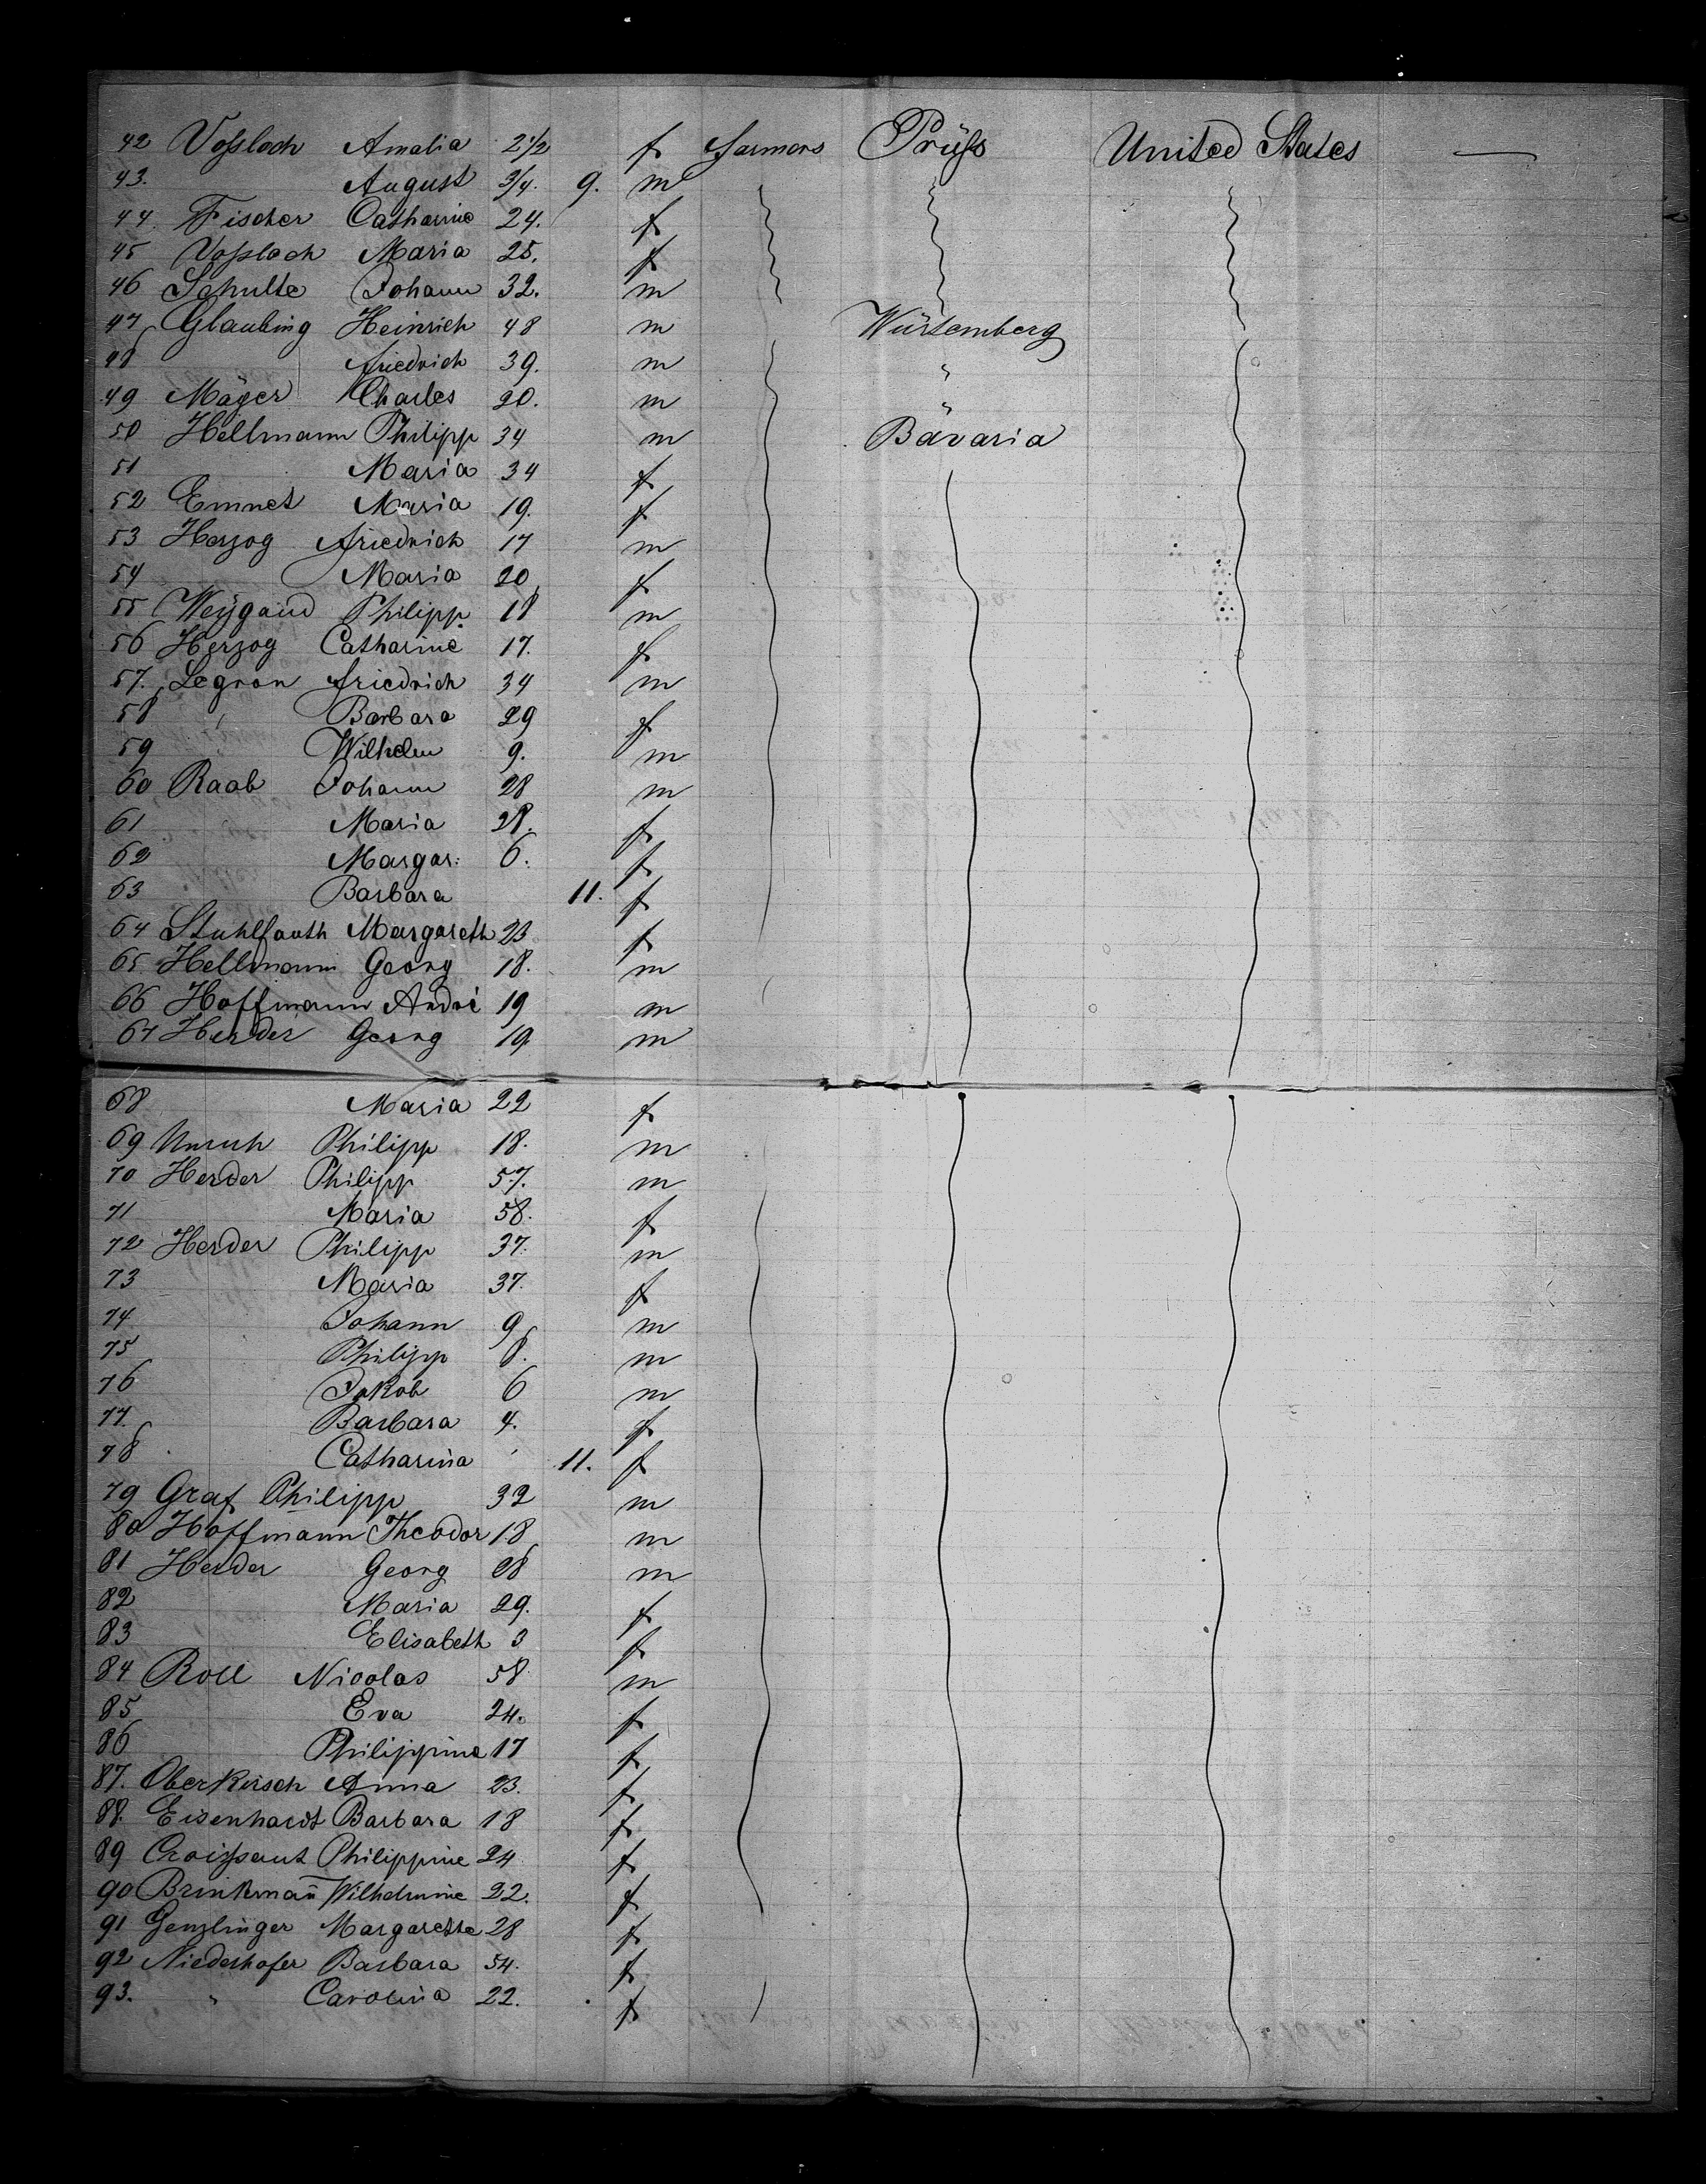 42 Voßloch Amalia 2 1/2 f farmers Prüß United States —
43. August 3/4. 9. m
44. Fischer Catharine 24. f
45 Voßloch Maria 25. f
46 Schulte Johann 32. m
47 Glaubing Heinrich 48 m Würtemberg
48 Friedrich 39. m "
49 Mäyer Charles 20. m "
50 Hellmann Philipp 34 m Bavaria
51 Maria 34 f
52 Emnet Maria 19. f
53 Herzog Friedrich 17 m
54 Maria 20 f
55 Weÿgand Philipp 18 m
56 Herzog Catharine 17. f
57. Legron Friedrich 34 m
58 " Barbara 29 f
59 Wilhelm 9. m
60 Raab Johann 28 m
61 Maria 28. f
62 Margar: 6. f
63 Barbara 11. f
64 Stuhlfauth Margareth 23 f
65. Hellmann Georg 18. m
66 Hoffmann André 19 m
67 Herder Georg 19. m
68 Maria 22 f
69 Unruh Philipp 18. m
70 Herder Philipp 57. m
71 Maria 58. f
72 Herder Philipp 37. m
73 Maria 37. f
74 Johann 9 m
75 Philipp 8. m
76 Jakob 6 m
77. Barbara 4. f
78 Catharina 11. f
79 Graf Philipp 32 m
80 Hoffmann Theodor 18 m
81 Herder Georg 28 m
82 Maria 29. f
83 Elisabeth 3 f
84 Roll Nicolas 58 m
85 Eva 24. f
86 Philippine 17 f
87. Oberkirsch Anna 23. f
88. Eisenhardt Barbara 18 f
89 Croißant Philippine 24 f
90 Brinkmañ Wilhelmine 22. f
91 Genzlinger Margarethe 28 f
92 Niederhofer Barbara 54. f
93. " Carolina 22. f